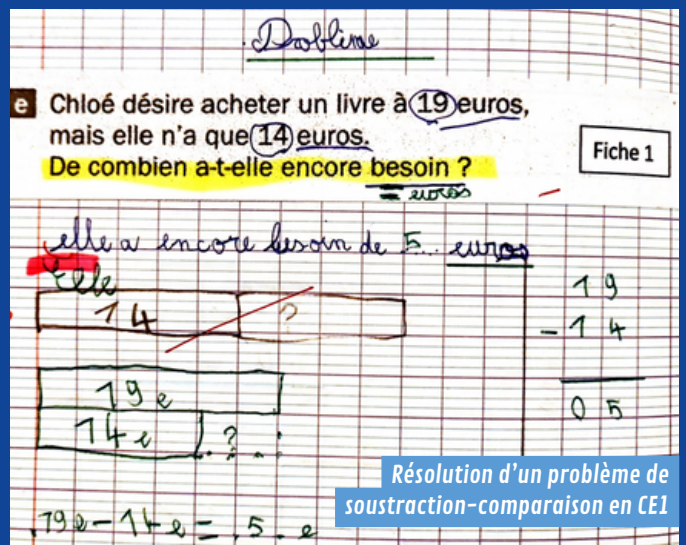 Problème
e Chloé désire acheter un livre à 19 euros,
mais elle n'a que 14 euros.
De combien a-t-elle encore besoin ?
Fiche 1
= euros
elle a encore besoin de 5 euros
Elle
14 ?
19 e
14 e ?
19 e - 14 e = 5 e
19
- 14
05
Résolution d'un problème de
soustraction-comparaison en CE1